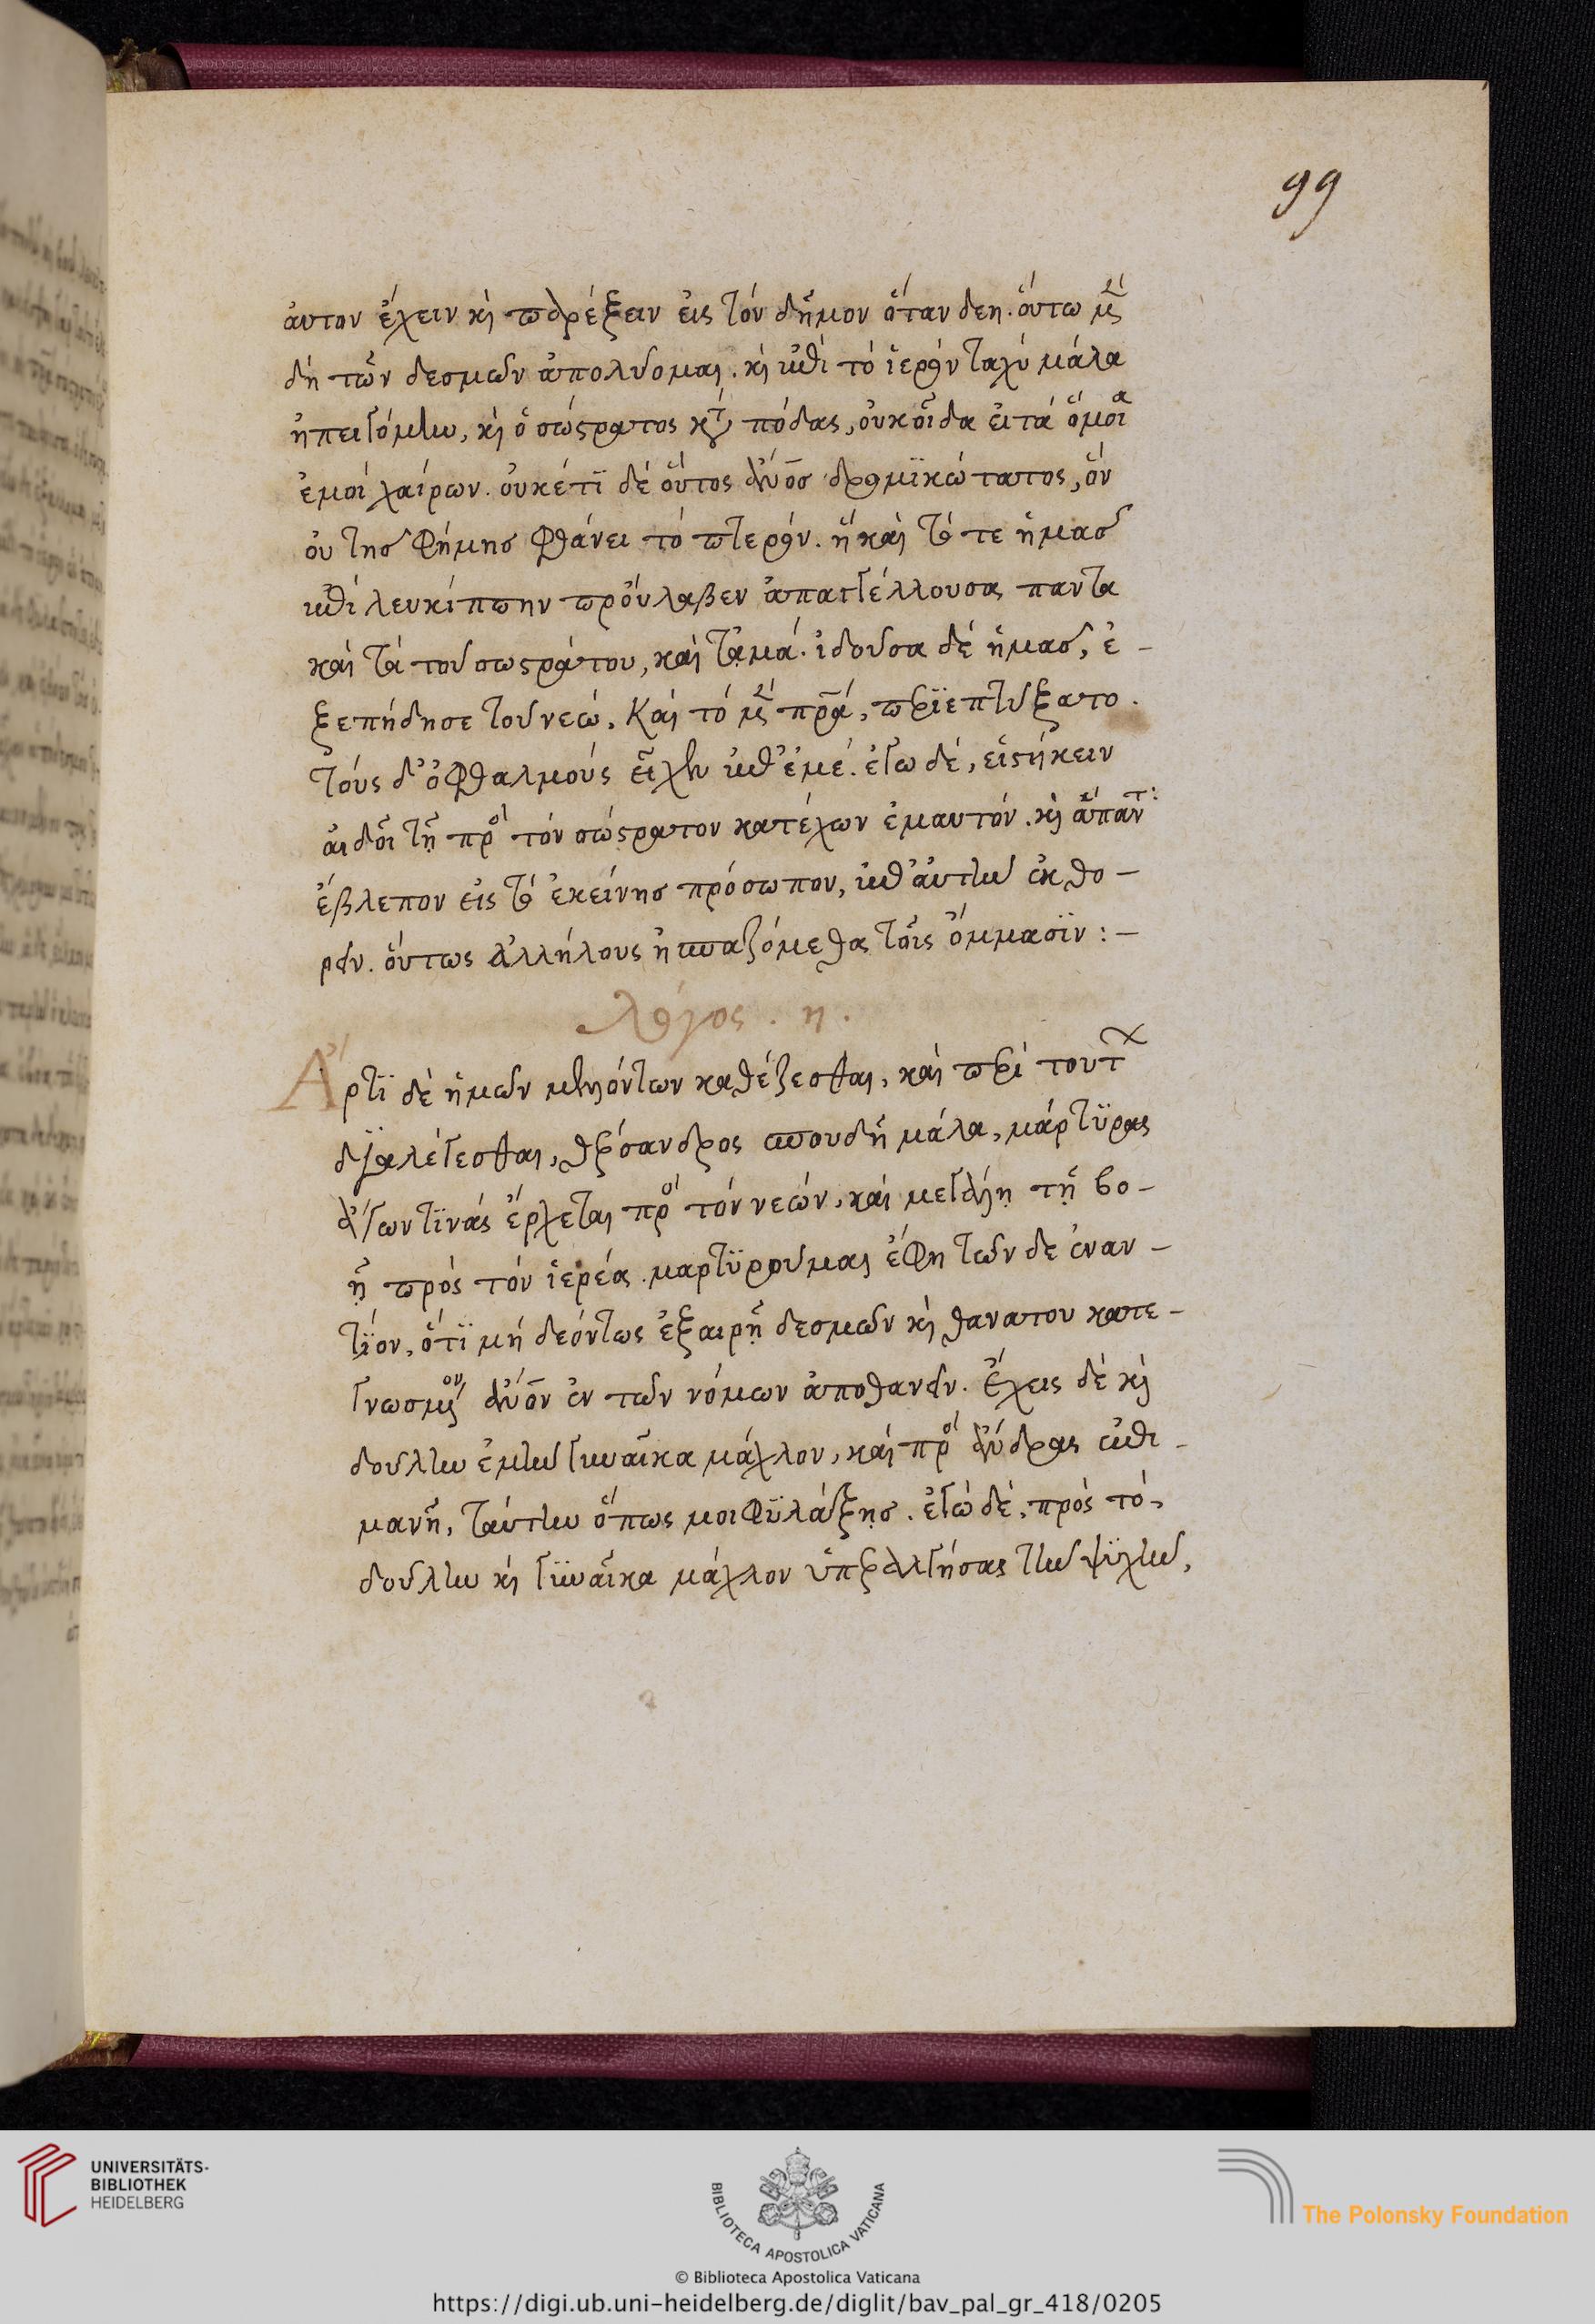 99
ἀυτον ἔχειν κὶ παρέξειν εἰς τὸν δῆμον ὅταν δεη. ὅυτω μὲν
δὴ τῶν δεσμῶν ἀπολύομαι. κὶ ἐπὶ τὸ ἱερὸν ταχὺ μάλα
ἠπειγόμην, κὶ ὁ σώστρατος κατὰ πόδας, ὀυκ οἶδα ἐι τὰ ὅμοια
ἐμοὶ χαίρων. ὀυκέτϊ δὲ ὅυτος ἄνος δρομϊκώτατος, ὃν
ὀυ της φήμης φθάνει τὸ πτερόν. ἣ καὶ τότε ἡμασ
ἐπὶ λευκίππην πρὀύλαβεν ἀπαγγέλλουσα παντα
καὶ τὰ του σωστράτου, καὶ τἀμά. ἰδουσα δὲ ἡμασ, ἐ-
ξεπήδησε του νεώ. Καὶ τὸ μὲν πρα, περϊεπτύξατο.
τοὺς δ᾽ ὀφθαλμοὺς εἶχεν ἐπ᾽ ἐμέ. ἐγω δὲ, εἱστήκειν
ἀιδοῖ τῇ πρὸ τὸν σώστρατον κατέχων ἐμαυτόν. κὶ ἅπαντ:
ἔβλεπον εἰς τὸ ἐκείνησ πρόσωπον, ἐπ᾽ ἀυτὴν ἐκθο-
ρεῖν. ὅυτως ἀλλήλους ἠσπαζόμεθα τοῖς ὄμμασϊν :-
λόγος . η .
Ἄρτϊ δὲ ἡμῶν μελλόντων καθέζεσθαι, καὶ περὶ τουτων
δϊαλέγεσθαι, θέρσανδρος σπουδῇ μάλα, μάρτϋρας
ἄγων τϊνὰς ἔρχεται πρὸ τὸν νεὼν, καὶ μεγάλῃ τῇ βο-
ῇ πρὸς τὸν ἱερέα. μαρτϋρουμαι ἔφη τῶν δε ἐναν-
τϊον, ὅτϊ μὴ δεόντως ἐξαιρῇ δεσμῶν κὶ θανατου κατε-
γνωσμένον ἄνον ἐν τῶν νόμων ἀποθανεῖν. ἔχεις δὲ κὶ
δούλην ἐμὴν γυναῖκα μάχλον, καὶ πρὸ ἄνδρας ἐπι-
μανῆ, ταύτην ὅπως μοι φϋλάξῃσ. ἐγὼ δὲ, πρὸς τὸ,
δούλην κὶ γϋναῖκα μάχλον ὑπεραλγήσας τὴν ψϋχὴν,
UNIVERSITÄTS-
BIBLIOTHEK
HEIDELBERG
BIBLIOTECA APOSTOLICA VATICANA
The Polonsky Foundation
© Biblioteca Apostolica Vaticana
https://digi.ub.uni-heidelberg.de/diglit/bav_pal_gr_418/0205